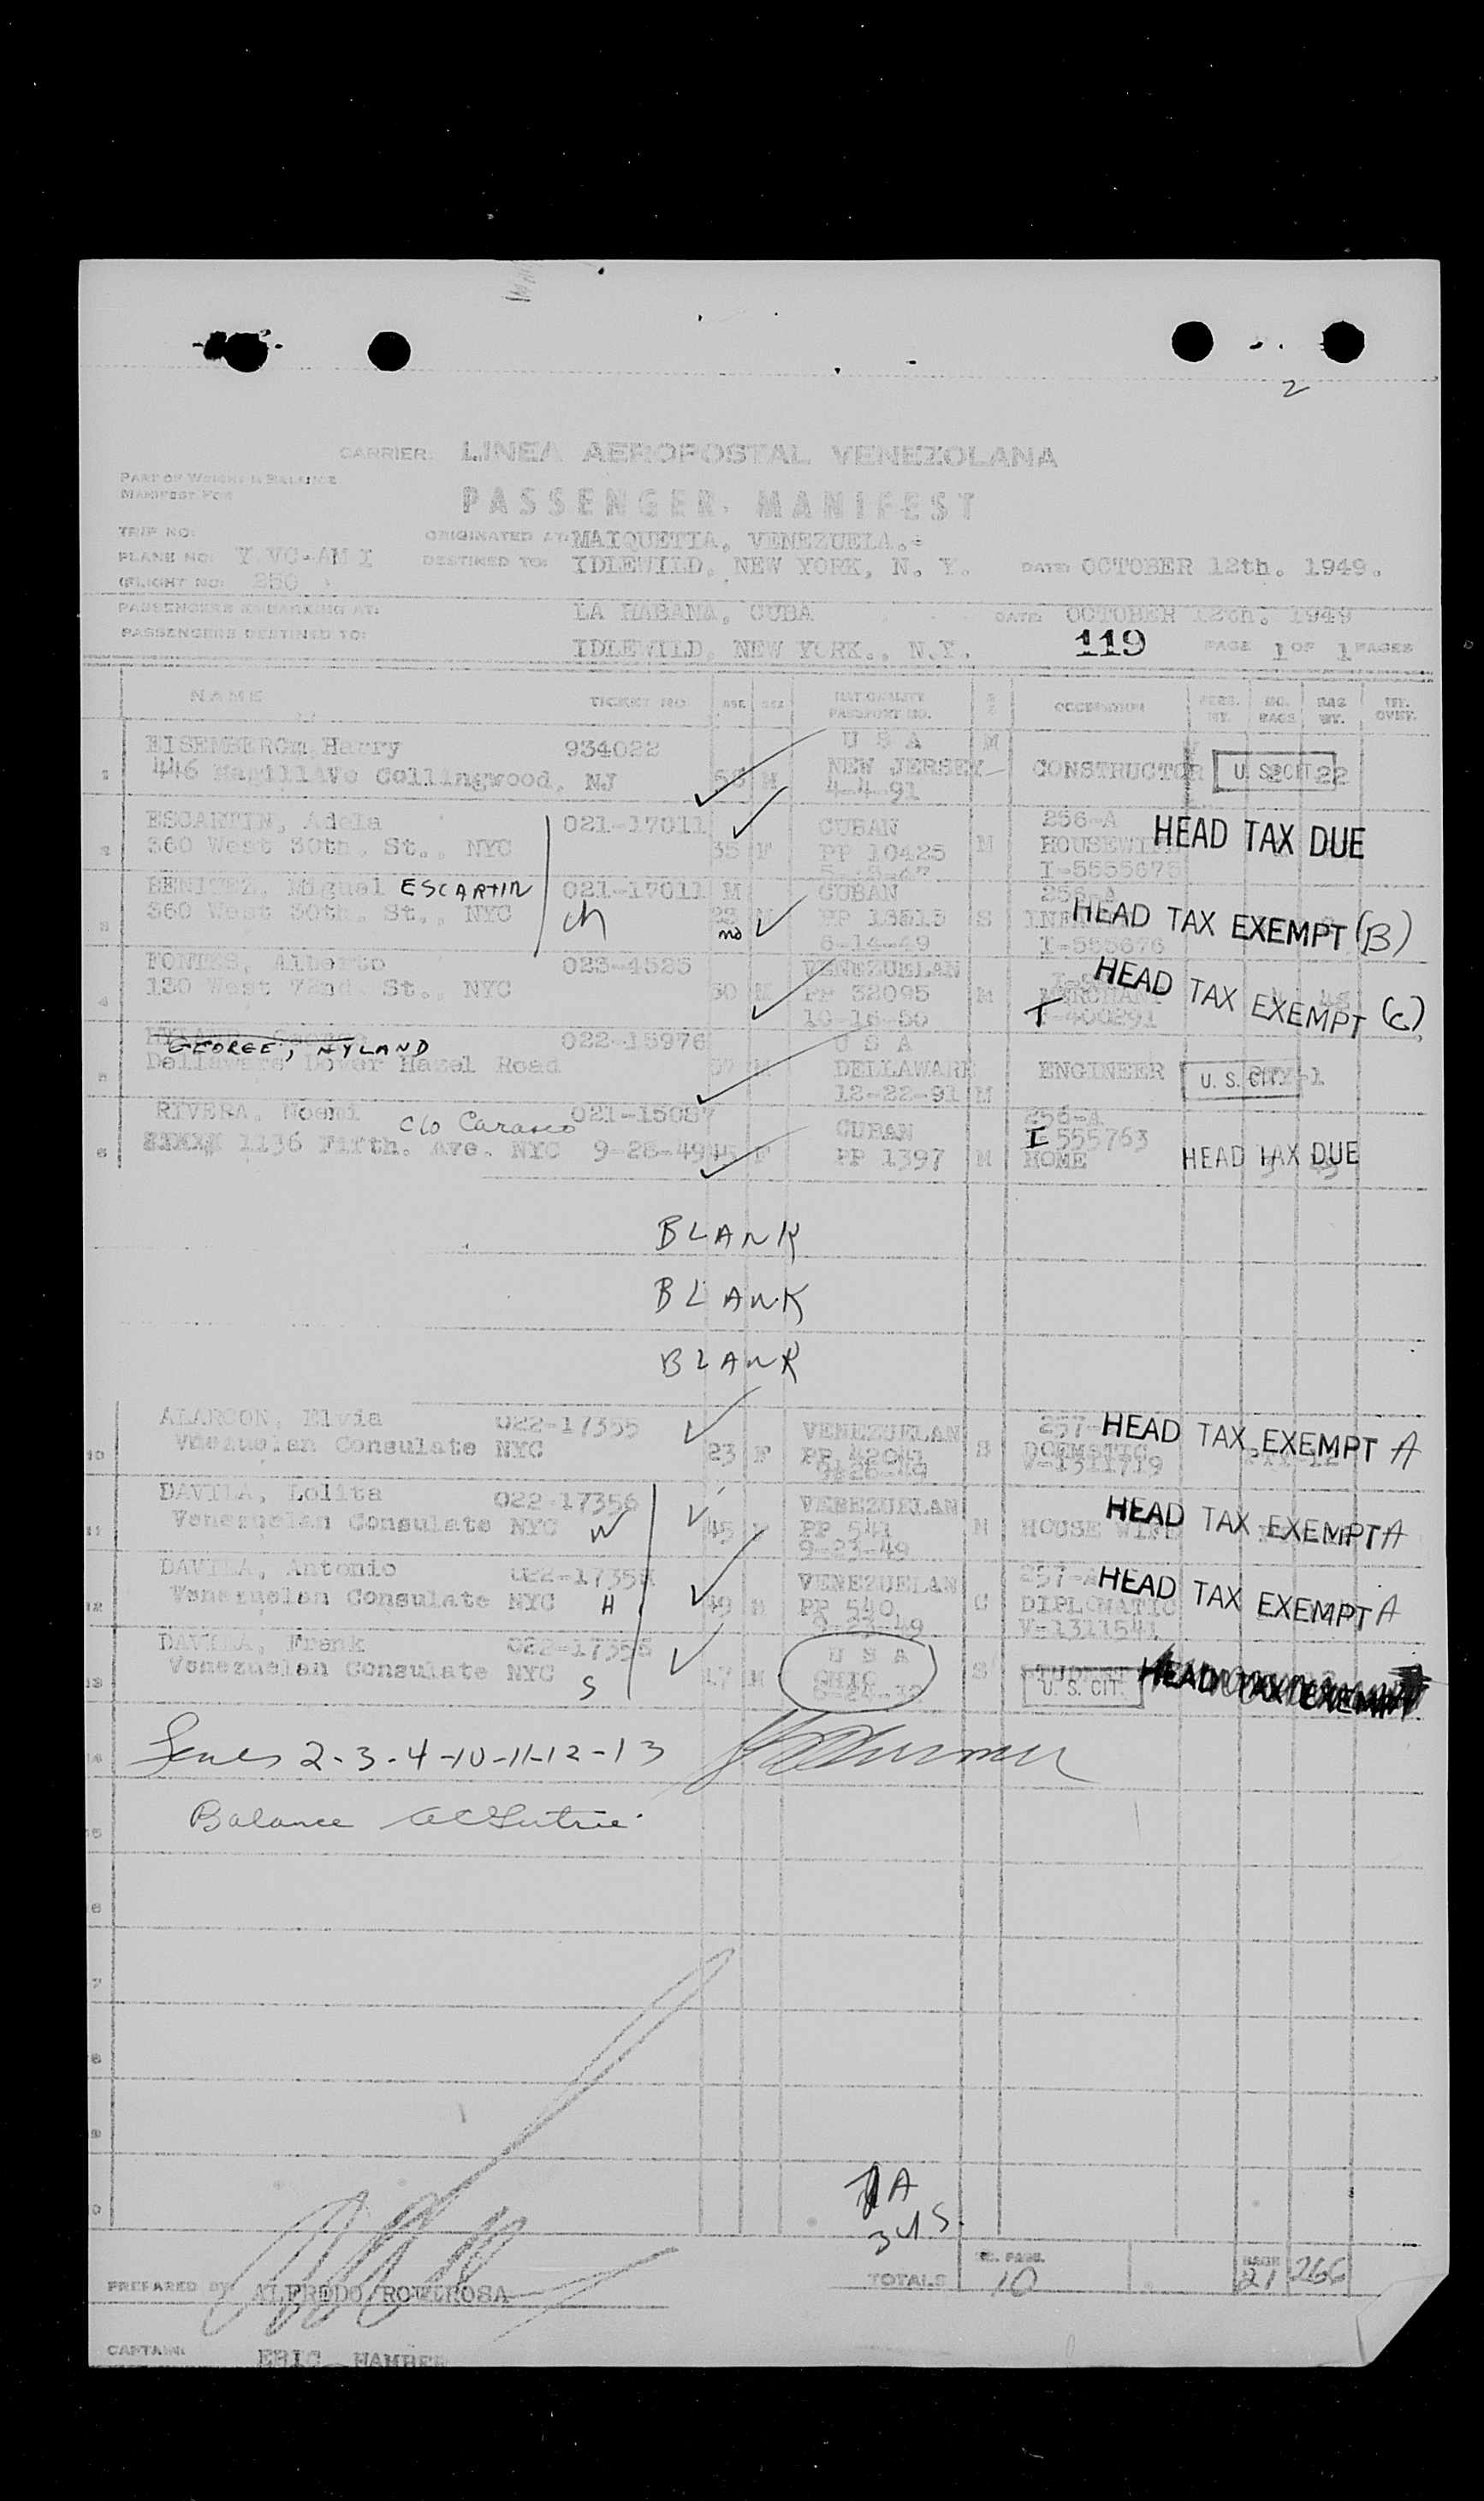 2
CARRIER: LINEA AEROPOSTAL VENEZOLANA
PART OF WEIGHT & BALANCE
MANIFEST FOR
PASSENGER MANIFEST
TRIP NO:
ORIGINATED AT: MAIQUETIA, VENEZUELA.=
PLANE NO: Y VC-AM I DESTINED TO: IDLEWILD, NEW YORK, N. Y. DATE: OCTOBER 12th. 1949.
(FLIGHT NO: 250
PASSENGERS EMBARKING AT: LA HABANA, CUBA DATE: OCTOBER 12th. 1949
PASSENGERS DESTINED TO: IDLEWILD, NEW YORK., N.Y. 119 PAGE 1 OF 1 PAGES
NAME TICKET NO AGE SEX NATIONALITY PASSPORT NO. OCCUPATION PERS. WT. NO. BAGS BAG WT.
EISEMBERGm Harry 934022 U S A M
1 446 Ave Collingwood, NJ 58 M NEW JERSEY CONSTRUCTOR U. S. CIT. 22
4-4-91
ESCARTIN, Adela 021-17011 CUBAN 256-A HEAD TAX DUE
2 360 West 30th. St., NYC 35 F PP 10425 M HOUSEWIFE
I-5555675
BENITEZ, Miguel ESCARTIN 021-17011 M CUBAN 256-A
3 360 West 30th. St., NYC ch no PP 13515 S HEAD TAX EXEMPT (B)
6-14-49 I-555676
FONTES, Alberto 023-4525 VENEZUELAN HEAD TAX EXEMPT (C)
4 130 West 72nd. St., NYC 30 M PP 32095 M MERCHANT
10-16-50 T-400291
022-15976 U S A
GEORGE, NYLAND
5 Dellaware Dover Hazel Road 57 M DELLAWARE ENGINEER U. S. CIT.
12-22-91 M
RIVERA, Noemi 021-15087 256-A
c/o CUBAN I 555763
6 1136 Fifth. Ave. NYC 9-28-49 45 F PP 1397 M HOME HEAD TAX DUE
BLANK
BLANK
BLANK
ALARCON, Elvia 022-17355 VENEZUELAN 257- HEAD TAX EXEMPT A
10 Venezuelan Consulate NYC 23 F PP 42041 S DOEMSTIC
9-26-49 V-1311719
DAVILA, Lolita 022-17356 VENEZUELAN HEAD TAX EXEMPT A
11 Venezuelan Consulate NYC W 45 F PP 541 M HOUSE WIFE
9-23-49
DAVILA, Antonio 022-17355 VENEZUELAN 257-A HEAD TAX EXEMPT A
12 Venezuelan Consulate NYC H 49 M PP 540 C DIPLOMATIC
9-23-49 V-1311541
DAVILA, Frank 022-17355 U S A
13 Venezuelan Consulate NYC S 17 M OHIO S STUDENT U. S. CIT. HEAD TAX EXEMPT
Lines 2-3-4-10-11-12-13
Balance
A
3 US.
PREPARED BY: ALFREDO ROVIROSA TOTALS 10 21 266
CAPTAIN: ERIC